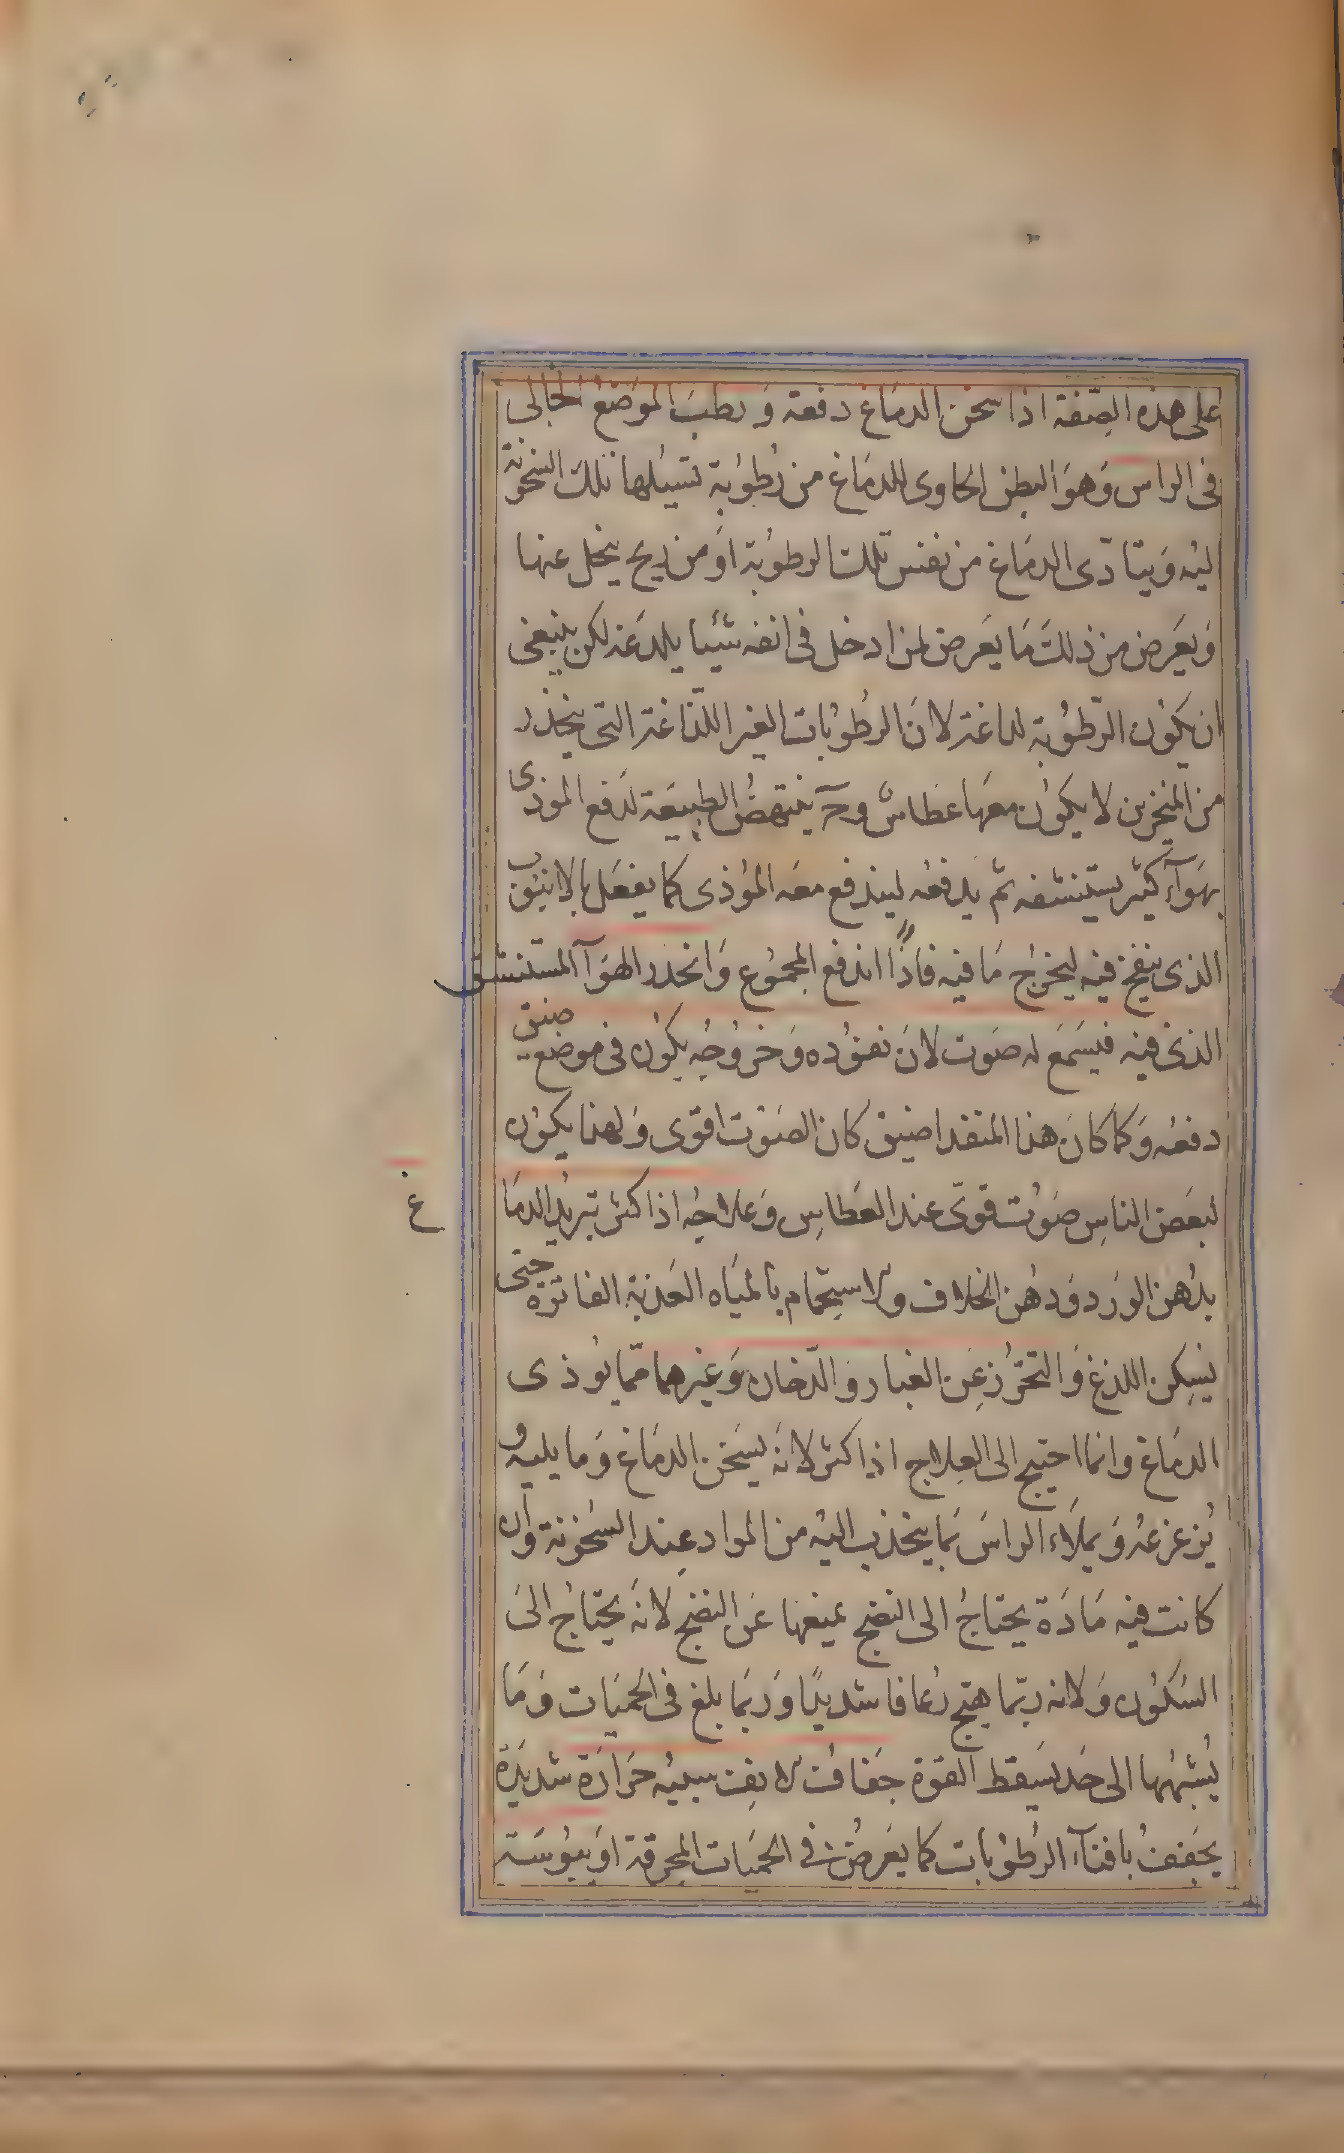 على هذه الصّفة اذا سخن الدماغ دفعة وَ رطبَ الموَضعُ الخالى
فى الراس وَهوَ البطن الحاوى للدمَاغ من رُطوُبة تسيلها تلكَ السخونة
اليْه وَيتادّى الدمَاغ من نفس تلك الرطوُبة اوَ من ريح ينحل عنها
وَ يعَرض من ذلكَ مَا يعَرض لمن ادخل فى انفه شيئا يلدغه لكن ينبغى
ان يكوُن الرّطوُبة لداغة لانَ الرطوُبات الغير اللّذاغة التى ينحدر
من المنخرين لا يكوُن معهَا عطاسٌ وحَ ينتهضُ الطبيعَة لدَفع الموذى
بهوَآء كثير يستنشقه ثم يَدفعُه ليندفع معَه الموُذى كما يفعَل بالانبوُب
الذى ينفخ فيْه ليخرجُ مَا فيه فاذاً اندفع المجموُع وَانحدر الهوَآ المستنشق
الذى فيْه فيسَمَع له صَوت لانَ نفوُده وَخروُجُه يكوُن فى موضع ضيق
دفعَه وَكما كانَ هذا المنفد اضيق كان الصَوْت اقوَى وَلهذا يكوُن
لبعَض الناسِ صَوُت قوَىّ عند العَطاسِ وَعلاجُه اذا كثر تبريدُ الدمَاغ
بدُهن الورَد وَدهُن الخلاف والاستحمام بالميَاه العَذبة الفاترة حتى
يسِكن اللدغ وَ التحَرُز عَن الغبار وَ الدّخان وَغيرهما ممّا يوُذى
الدمَاغ وانما احتيج الى العِلاج اذا كثر لانَه يسَخن الدمَاغ وَما يليه و
يُزعزعُه وَيملآء الراسَ بمَا ينجذب اليْه من المواد عِند السُخونة وان
كانت فيْه مَادَة يحتاجُ الى النضج يمنعها عَن النضج لانَه يحتاجُ الىَ
السَكوُن وَلانه ربّما هيّج رُعافا شديدًا وَربمَا بلغ فى الحمّيَات وَمَا
يُشبهُها الى حَد يسَقط القوَة جَفافُ الانِف سببُه حَرارَة شديَدة
يجَففُ بافنآء الرُطوُبات كما يعَرضُ فى الحمَيات المحِرقة اوَ يبوُسَة